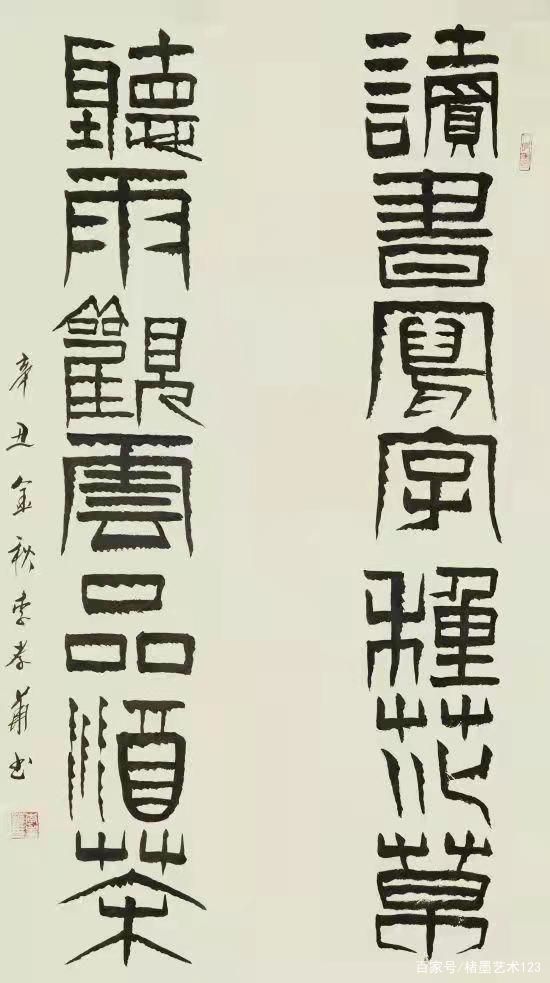 讀書寫字種花草
聽雨觀雲品酒茶
辛丑金秋李孝书
百家号/楮墨艺术123